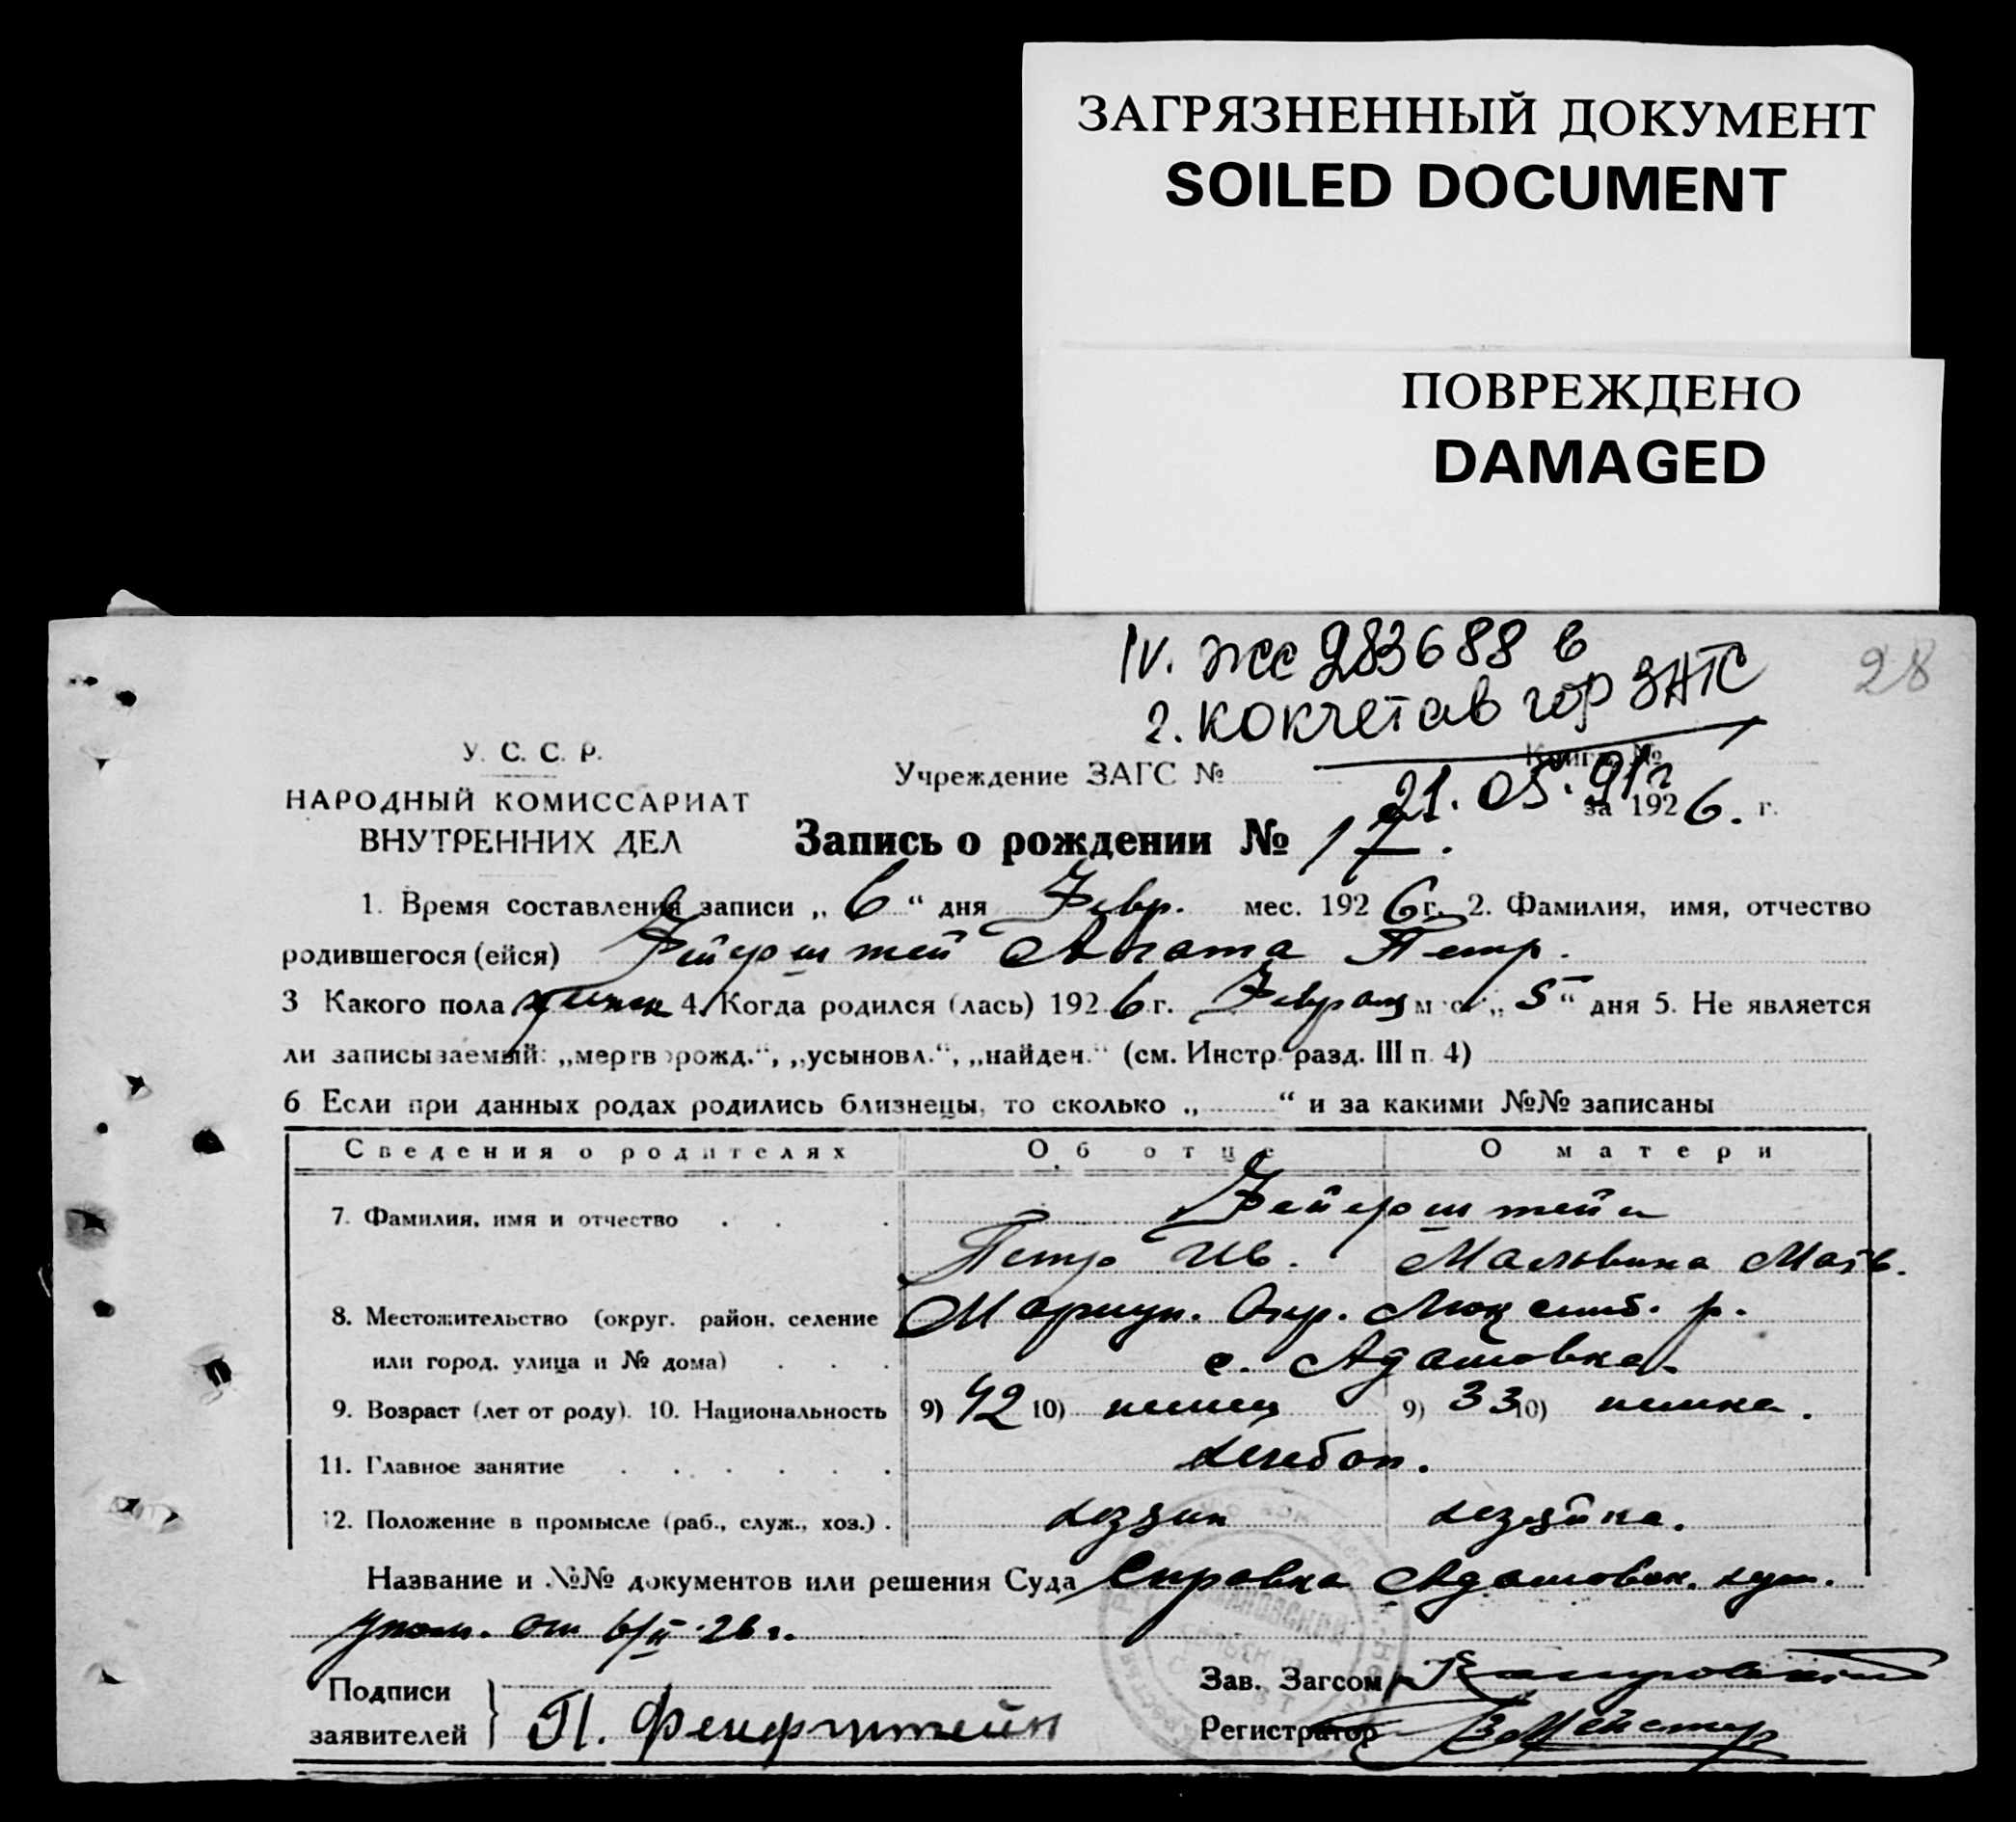 ЗАГРЯЗНЕННЫЙ ДОКУМЕНТ
SOILED DOCUMENT
ПОВРЕЖДЕНО
DAMAGED
IV. жсс 283688 в
г. Кокчетав гор ЗАГС
28
21.05.91г
У. С. С. Р.
НАРОДНЫЙ КОМИССАРИАТ
ВНУТРЕННИХ ДЕЛ
Учреждение ЗАГС №
Книга №
за 1926. г.
Запись о рождении № 17.
1. Время составления записи „6“ дня Февр. мес. 1926 г. 2. Фамилия, имя, отчество
родившегося (ейся) Фейерштей Агата Петр.
3 Какого пола женск 4. Когда родился (лась) 1926 г. Февраля м-ца „5“ дня 5. Не является
ли записываемый: „мертворожд.“, „усыновл.“, „найден.“ (см. Инстр. разд. III п. 4)
6 Если при данных родах родились близнецы, то сколько „ “ и за какими №№ записаны
Сведения о родителях Об отце О матери
7. Фамилия, имя и отчество Фейерштейн
Петр Ив. Мальвина Матв.
8. Местожительство (округ. район. селение Мариуп. Окр. Люксемб. р.
или город. улица и № дома) с. Адамовка.
9. Возраст (лет от роду). 10. Национальность 9) 42 10) немец 9) 33 10) немка.
11. Главное занятие хлебоп.
12. Положение в промысле (раб., служ., хоз.) хозяин хозяйка.
Название и №№ документов или решения Суда Справка Адамовск. сель.
упол. от 6/II-26 г.
Подписи заявителей П. Фейерштейн
Зав. Загсом
Регистратор